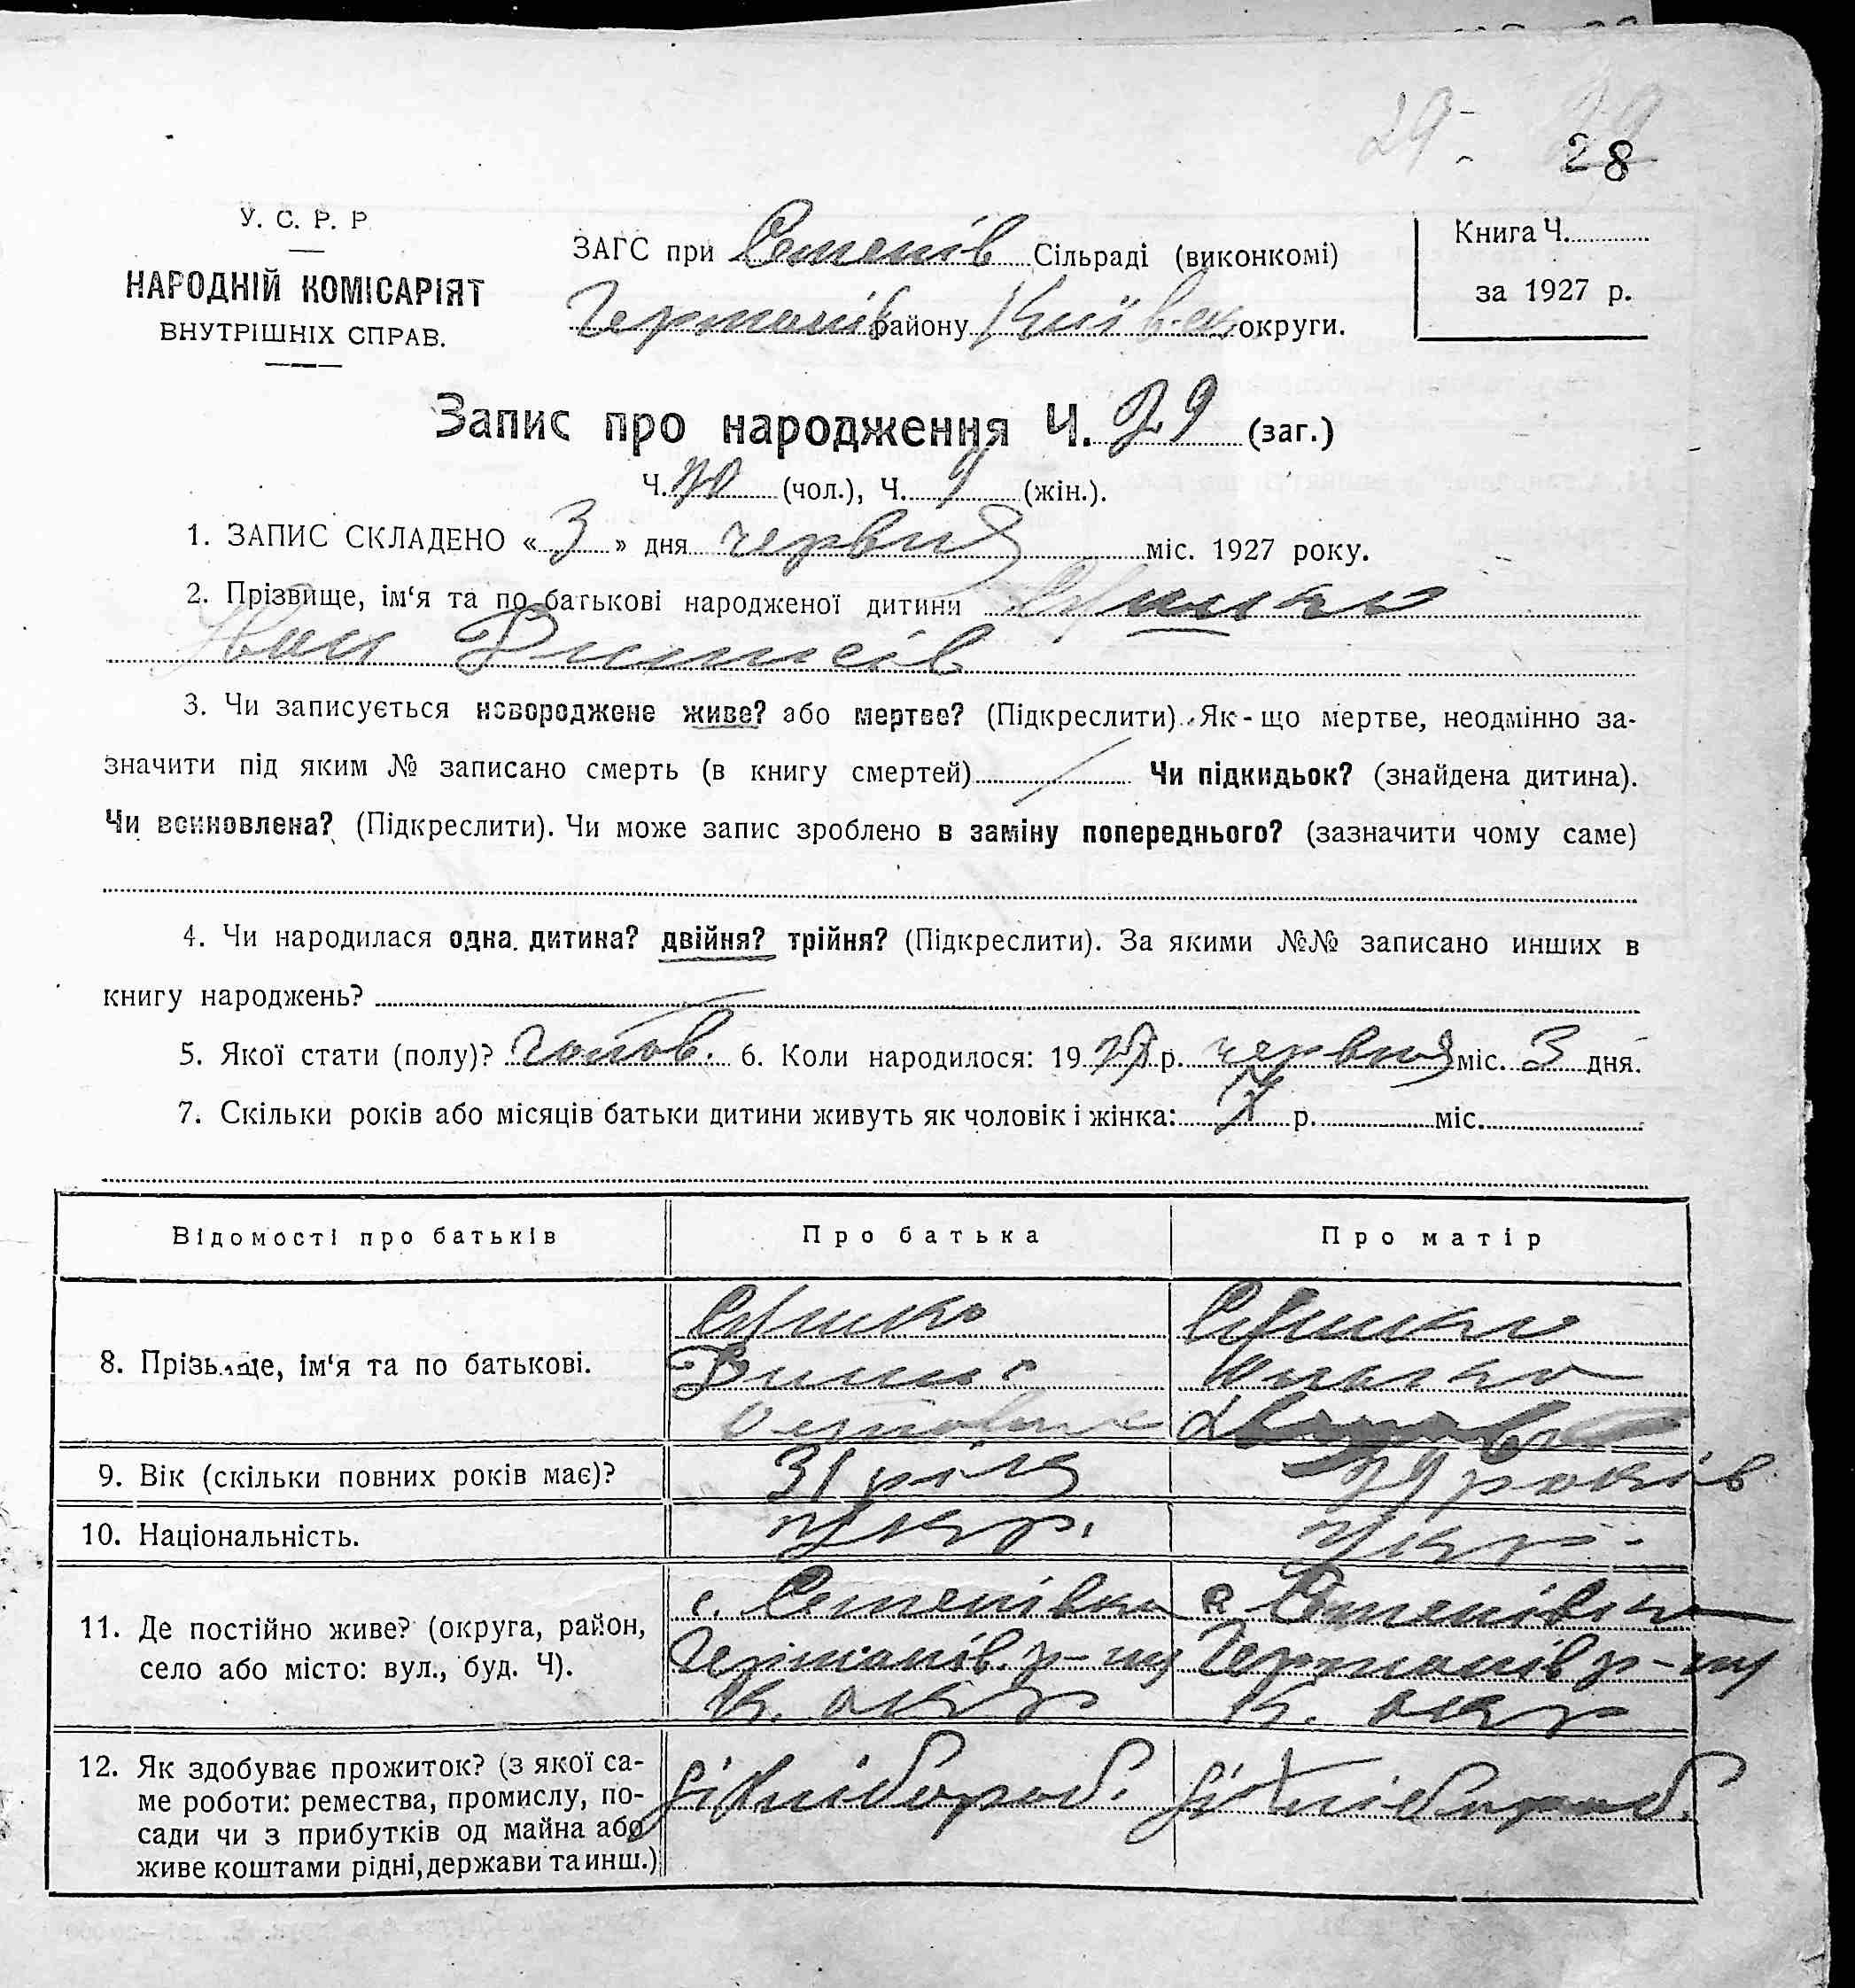 29
28
У. С. Р. Р
НАРОДНІЙ КОМІСАРІЯТ
ВНУТРІШНІХ СПРАВ.
ЗАГС при Семенів Сільраді (виконкомі)
Германів району Київськ округи.
Книга Ч.
за 1927 р.
Запис про народження Ч. 29 (заг.)
Ч. 20 (чол.), Ч. 9 (жін.).
1. ЗАПИС СКЛАДЕНО « 3 » дня червня міс. 1927 року.
2. Прізвище, ім‘я та по батькові народженої дитини
Іван Дмитрів
3. Чи записується новороджене живе? або мертве? (Підкреслити). Як-що мертве, неодмінно за-
значити під яким № записано смерть (в книгу смертей) Чи підкидьок? (знайдена дитина).
Чи всиновлена? (Підкреслити). Чи може запис зроблено в заміну попереднього? (зазначити чому саме)
4. Чи народилася одна дитина? двійня? трійня? (Підкреслити). За якими №№ записано инших в
книгу народжень?
5. Якої стати (полу)? чолов. 6. Коли народилося: 19 27 р. червня міс. 3 дня.
7. Скільки років або місяців батьки дитини живуть як чоловік і жінка: р. міс.
Відомості про батьків Про батька Про матір
8. Прізвище, ім‘я та по батькові.
9. Вік (скільки повних років має)? 31 рік 29 років
10. Національність. укр. укр.
11. Де постійно живе? (округа, район,
село або місто: вул., буд. Ч).
с. Семенівка с Семенівка
Германів. р-ну Германів р-ну
К. окр К. окр
12. Як здобуває прожиток? (з якої са-
ме роботи: ремества, промислу, по-
сади чи з прибутків од майна або
живе коштами рідні, держави та инш.)
хліббороб. хліббороб.